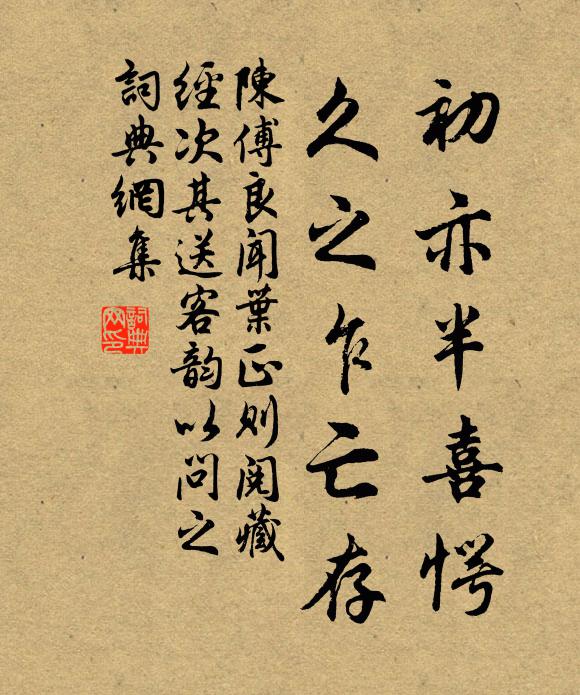 初亦半喜愕
久之乍亡存
陳傅良聞葉正則閱藏
經次其送客韵以問之
詞典網集
詞典网印